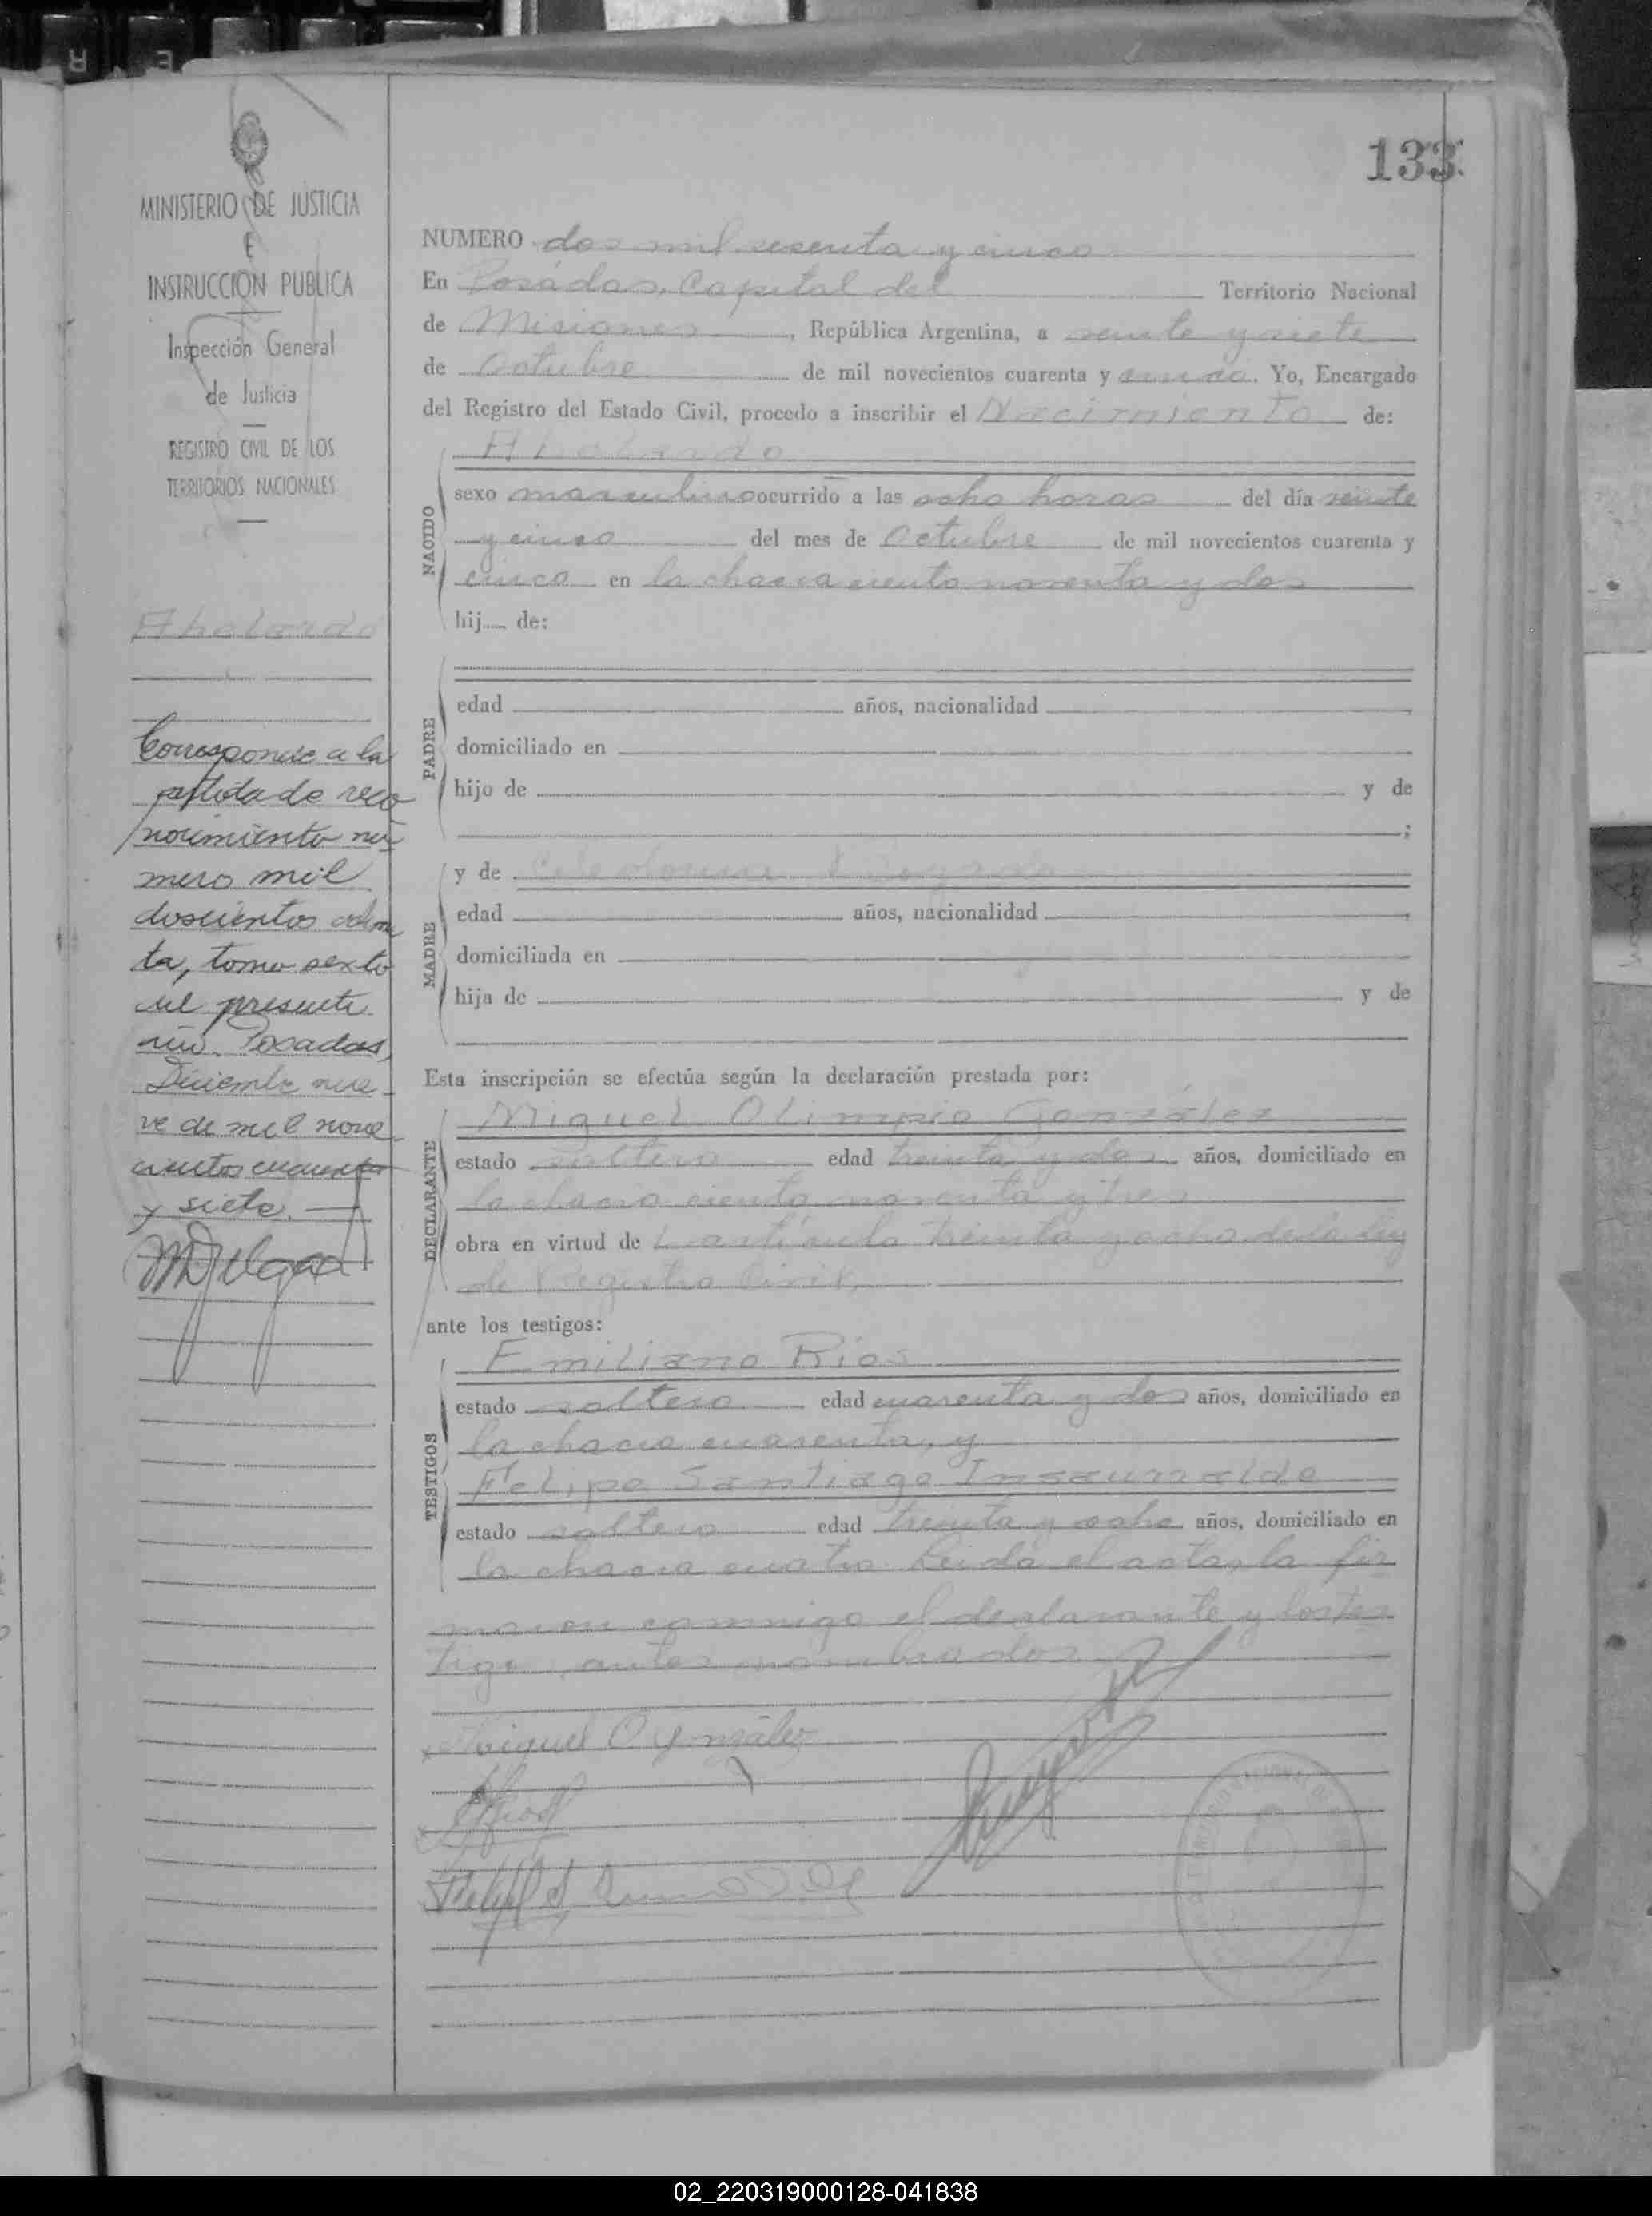 133
MINISTERIO DE JUSTICIA
E
INSTRUCCION PUBLICA
Inspección General
de Justicia
REGISTRO CIVIL DE LOS
TERRITORIOS NACIONALES
Abelardo
Corresponde a la
partida de reco
nocimiento nú-
mero mil
doscientos ochen
ta, tomo sexto
del presente
año. Posadas,
Diciembre nue-
ve de mil nove-
cientos cuarenta
y siete.
NUMERO dos mil sesenta y cinco
En Posadas, Capital del Territorio Nacional
de Misiones, República Argentina, a veinte y siete
de Octubre de mil novecientos cuarenta y cinco. Yo, Encargado
del Registro del Estado Civil, procedo a inscribir el Nacimiento de:
Abelardo
NACIDO
sexo masculino ocurrido a las ocho horas del día veinte
y cinco del mes de Octubre de mil novecientos cuarenta y
cinco en la chacra ciento noventa y dos
hij de:
PADRE
edad años, nacionalidad
domiciliado en
hijo de y de
;
MADRE
y de Celedonia
edad años, nacionalidad
domiciliada en
hija de y de
Esta inscripción se efectúa según la declaración prestada por:
Miguel Olimpio González
DECLARANTE
estado soltero edad treinta y dos años, domiciliado en
la chacra ciento noventa y tres
obra en virtud de l artículo treinta y ocho de la ley
de Registro Civil,
ante los testigos:
Emiliano Rios
TESTIGOS
estado soltero edad cuarenta y dos años, domiciliado en
la chacra cuarenta, y
Felipe Santiago Insaurralde
estado soltero edad treinta y ocho años, domiciliado en
la chacra cuatro. Leida el acta, la fir
maron conmigo el declarante y los tes
tigos antes nombrados
Miguel O González
02_220319000128-041838